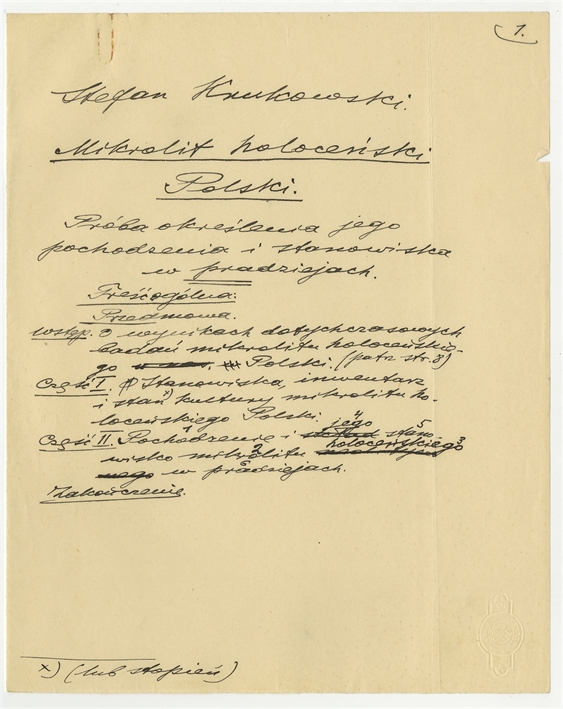 1.
Stefan Krukowski.
Mikrolit holoceński
Polski.
Próba określenia jego
pochodzenia i stanowiska
w pradziejach.
Treść ogólna:
Przedmowa.
Wstęp. O wynikach dotychczasowych
badań mikrolitu holoceńskie-
go Polski. (patrz str. 8)
Część I. Stanowiska, inwentarz
i stan x) kultury mikrolitu ho-
loceńskiego Polski.
Część II. Pochodzenie 1 i jego 4 stano- 5
wisko mikrolitu 2 holoceńskiego 3
w pradziejach.
Zakończenie.
x) (lub stopień)